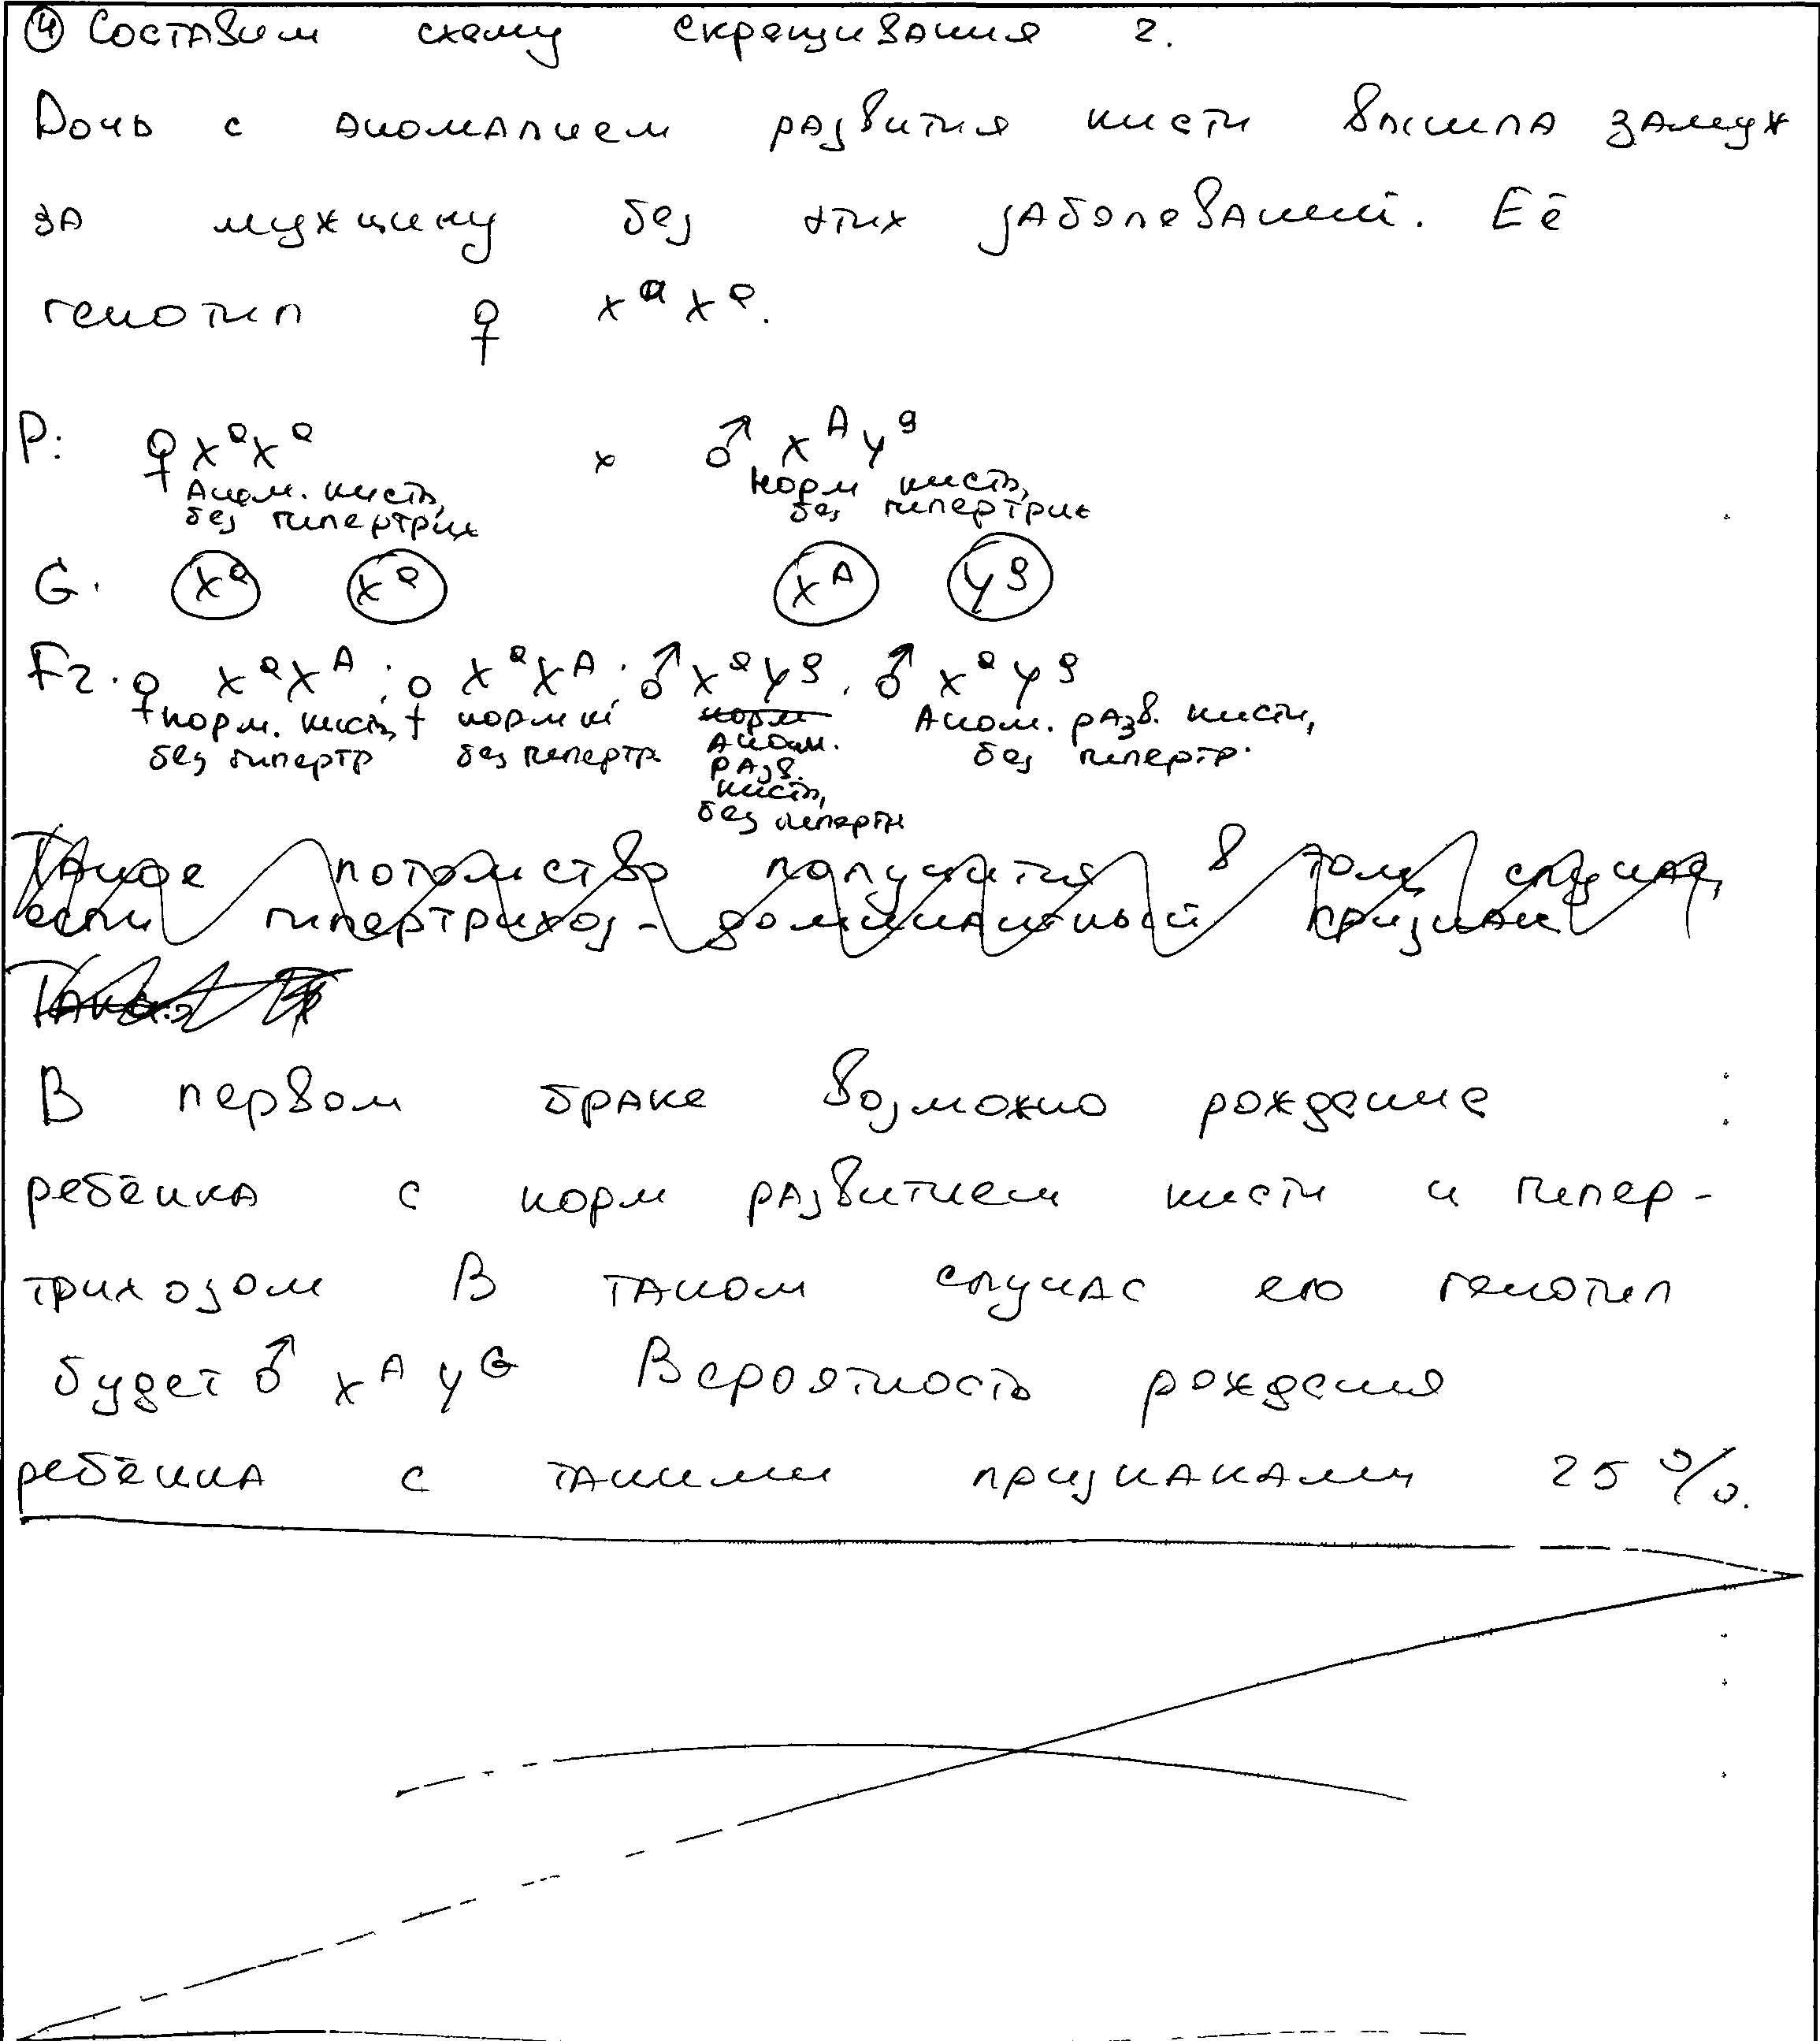 ④ Составим схему скрещивания 2.
Дочь с аномалием развития кисти вышла замуж
за мужчину без этих заболеваний. Её
генотип ♀ xᵃxᵃ.
P: ♀ xᵃxᵃ × ♂ xᴬyᵍ
Аном. кисть, норм кисть,
без гипертрих без гипертрих
G. xᵃ xᵃ xᴬ yᵍ
F2. ♀ xᵃxᴬ; ♀ xᵃxᴬ; ♂ xᵃyᵍ, ♂ xᵃyᵍ
норм. кисть, норм ки норм Аном. разв. кисти,
без гипертр без гипертр Аном. без гипертр.
разв.
кисть,
без гипертр
Такое потомство получится в том случае,
если гипертрихоз - доминантный признак
В первом браке возможно рождение
ребёнка с норм развитием кисти и гипер-
трихозом В таком случае его генотип
будет ♂ xᴬyᴳ Вероятность рождения
ребёнка с такими признаками 25%.